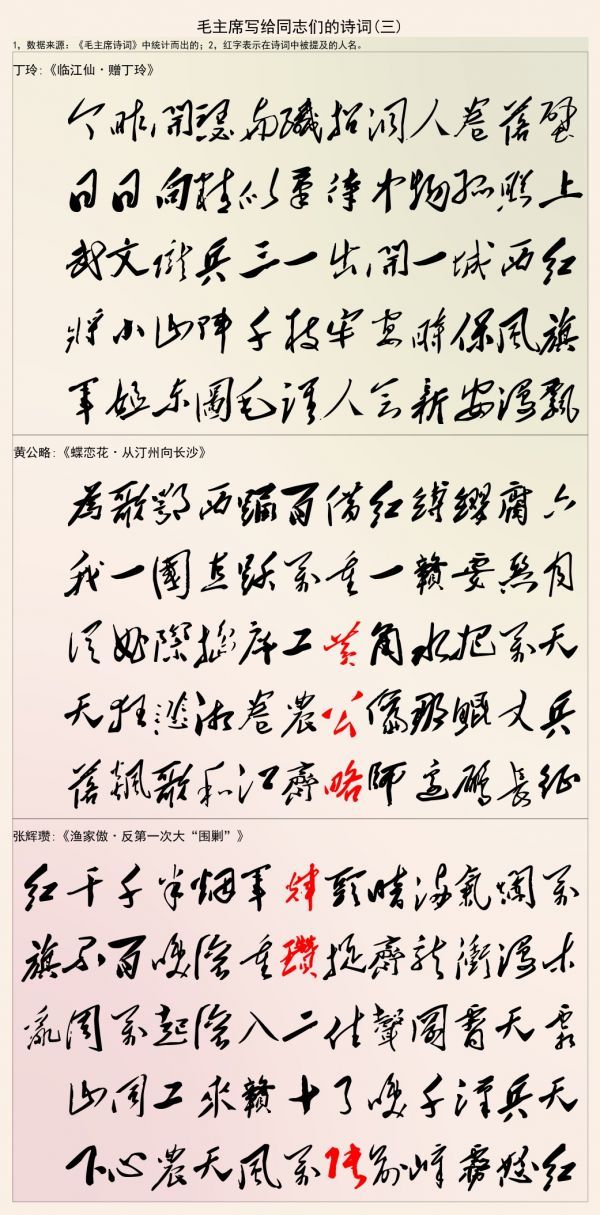 毛主席写给同志们的诗词(三)
1，数据来源：《毛主席诗词》中统计而出的；2，红字表示在诗词中被提及的人名。
丁玲:《临江仙·赠丁玲》
壁上红旗飘
落照西風漫
卷孤城保安
人物一時新
洞中開宴会
招待出牢人
纖筆一枝谁
与似三千毛
瑟精兵陣圖
開向隴山東
昨日文小姐
今日武將軍
黄公略:《蝶恋花·从汀州向长沙》
六月天兵征
腐惡萬丈長
纓要把鲲鹏
縛贛水那邊
红一角偏師
借重黄公略
百萬工農齊
踊跃席卷江
西直搗湘和
鄂國際悲歌
歌一曲狂飙
為我從天落
张辉瓒:《渔家傲·反第一次大“围剿”》
萬木霜天红
爛漫天兵怒
氣衝霄漢雾
满龍岡千嶂
暗齊聲唤前
頭捉住了张
輝瓒二十萬
軍重入贛風
烟滚滚来天
半唤起工農
千百萬同心
干不周山下
红旗亂